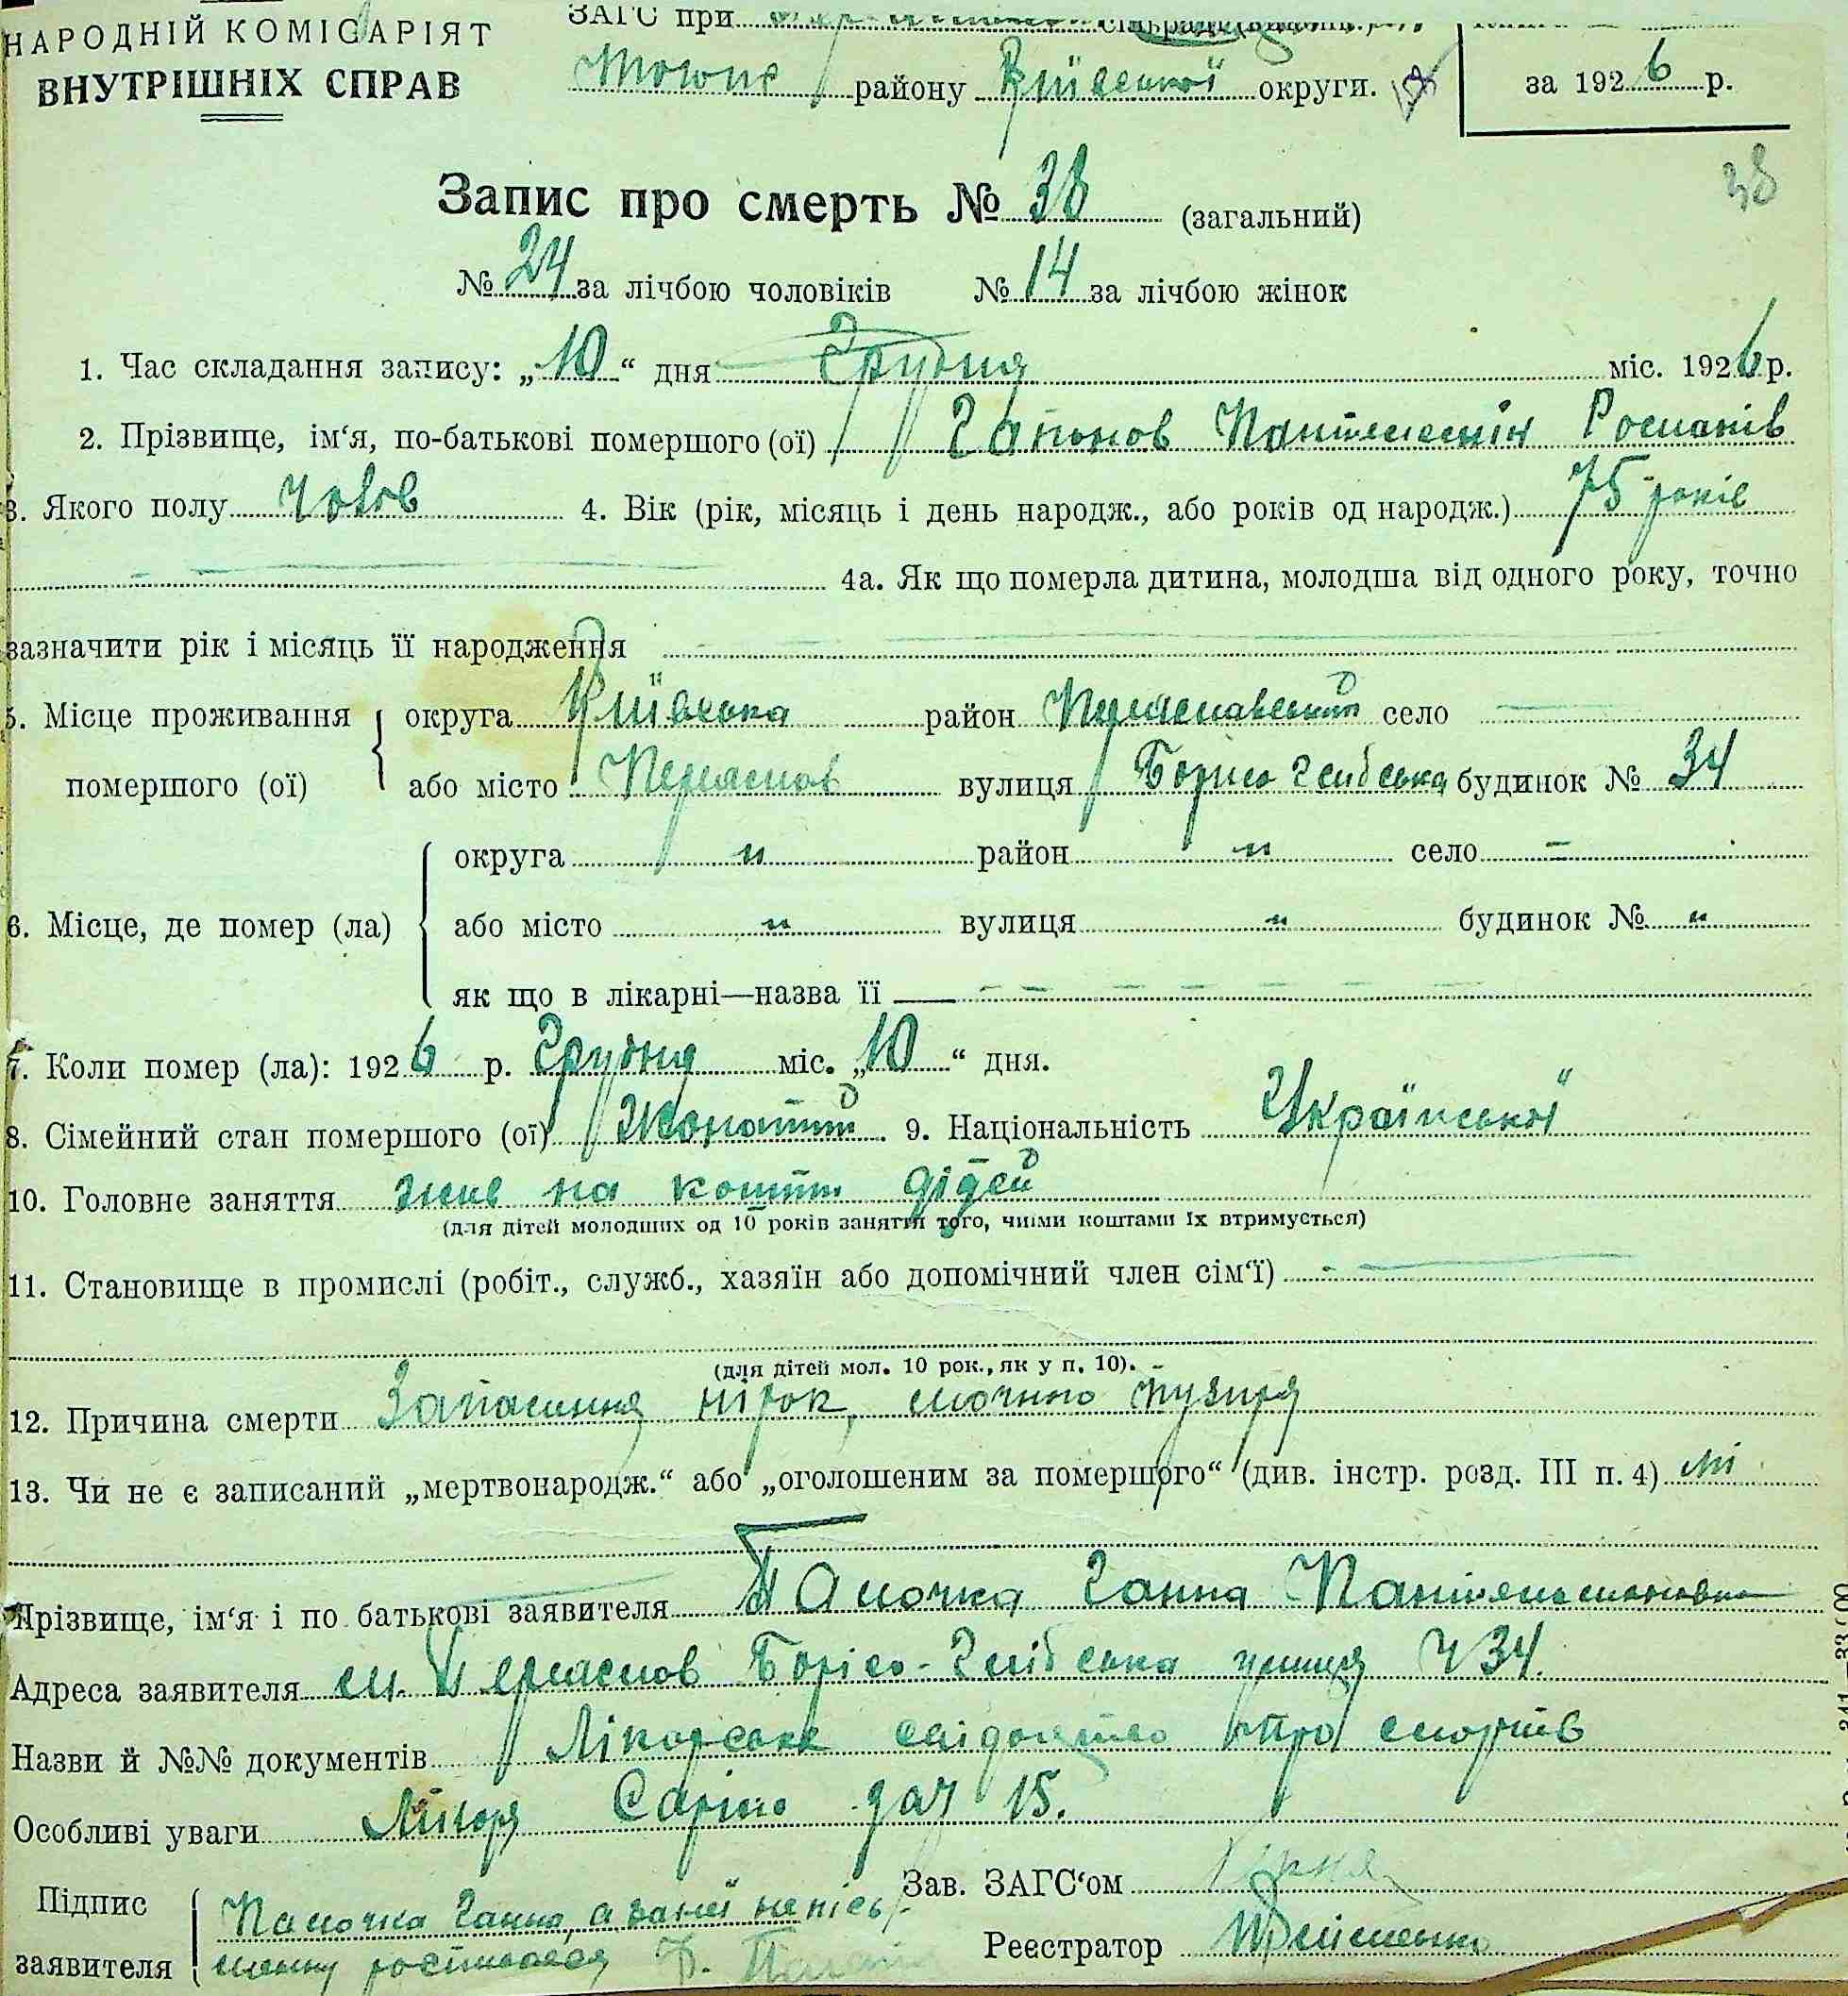 НАРОДНІЙ КОМІСАРІЯТ
ВНУТРІШНІХ СПРАВ
ЗАГС при
району Київської округи.
за 1926 р.
38
Запис про смерть № 38 (загальний)
№ 24 за лічбою чоловіків № 14 за лічбою жінок
1. Час складання запису: „10“ дня Грудня міс. 1926 р.
2. Прізвище, ім‘я, по-батькові помершого (ої) Гапонов Пантелемон Романів
3. Якого полу чолов 4. Вік (рік, місяць і день народж., або років од народж.) 75 років
4а. Як що померла дитина, молодша від одного року, точно
зазначити рік і місяць її народження
5. Місце проживання округа Київська район Переяславський село
помершого (ої) або місто Переяслав вулиця Борисо Глибська будинок № 34
округа „ район „ село –
6. Місце, де помер (ла) або місто „ вулиця „ будинок № „
як що в лікарні—назва її
7. Коли помер (ла): 1926 р. Грудня міс. „10“ дня.
8. Сімейний стан помершого (ої) Жонатий 9. Національність Української
10. Головне заняття живе на кошти дітей
(для дітей молодших од 10 років заняття того, чиїми коштами їх втримується)
11. Становище в промислі (робіт., служб., хазяїн або допомічний член сім‘ї)
(для дітей мол. 10 рок., як у п. 10).
12. Причина смерти Запалення нірок, мочного пузиря
13. Чи не є записаний „мертвонародж.“ або „оголошеним за помершого“ (див. інстр. розд. III п. 4) ні
Прізвище, ім‘я і по батькові заявителя Палочка Ганна Пантелемоновна
Адреса заявителя м. Переяслов Борісо-Глібська улиця Ч 34.
Назви й №№ документів Лікарське свідоцтво про смерть
Особливі уваги Лікаря
Підпис заявителя Палочка Ганна, а за неї неписьменну росписався
Зав. ЗАГС‘ом
Реєстратор